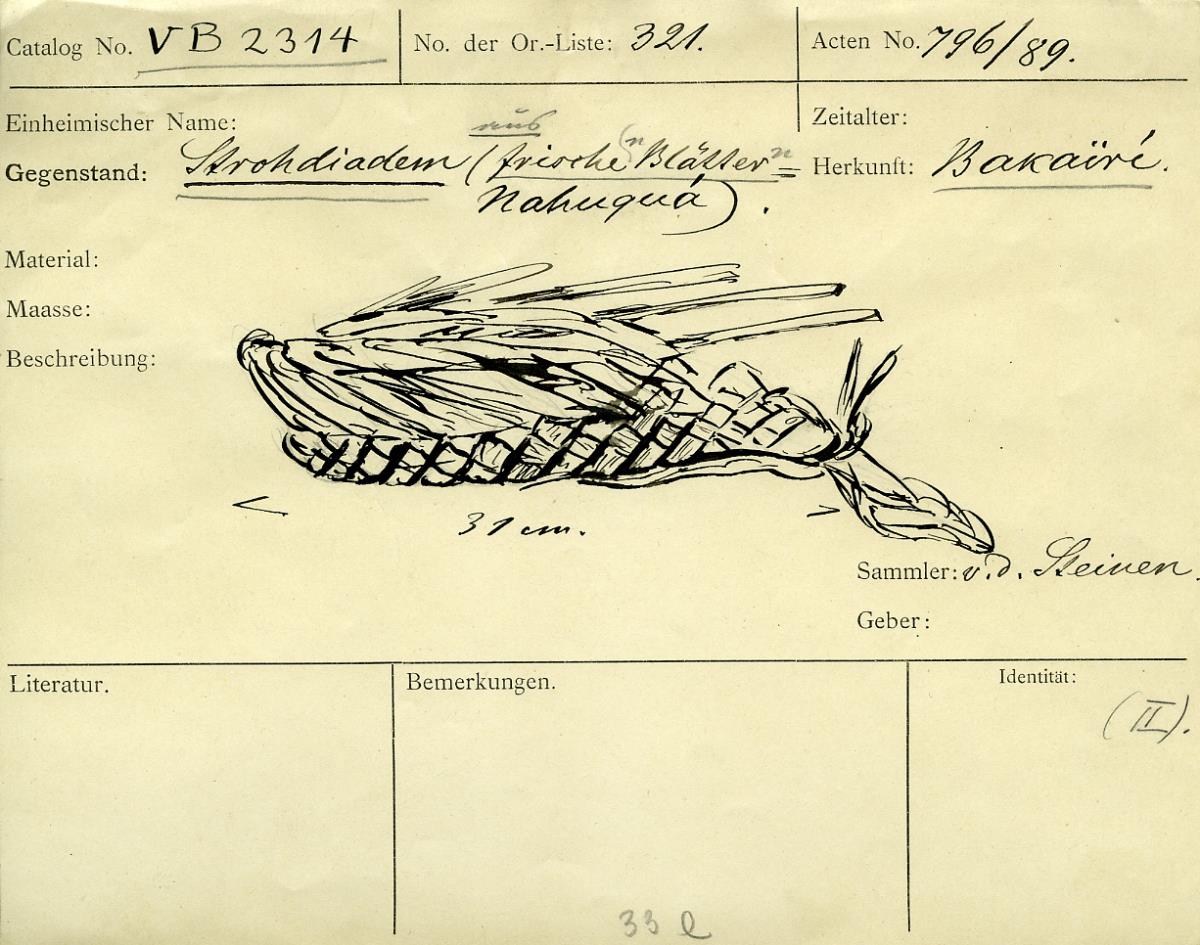 Catalog No. VB 2314
No. der Or.-Liste: 321.
Acten No. 796/89.
Einheimischer Name:
Zeitalter:
aus
Gegenstand: Strohdiadem (frischen Blättern
Nahuquá).
Herkunft: Bakaïrí.
Material:
Maasse:
Beschreibung:
31 cm.
Sammler: v. d. Steinen.
Geber:
Literatur.
Bemerkungen.
Identität:
(II).
33 l